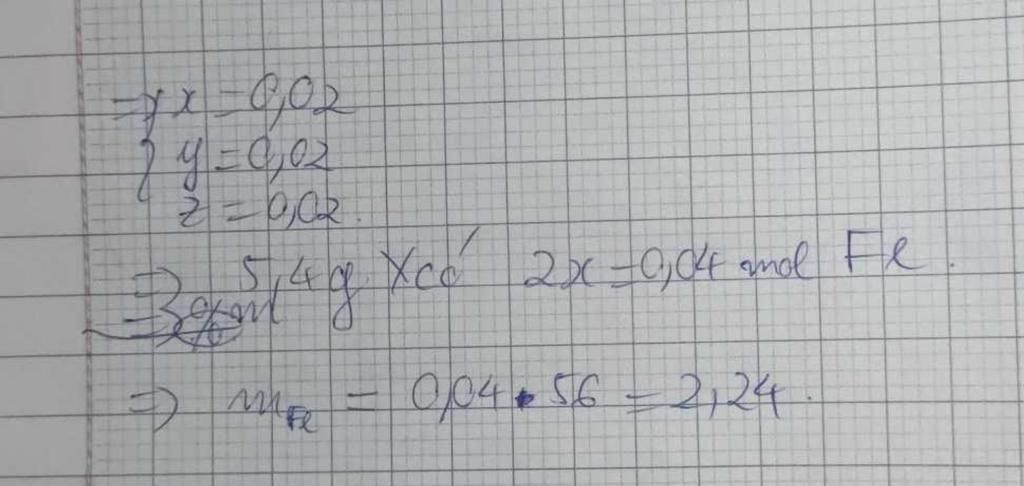 => x = 0,02
{ y = 0,02
z = 0,02.
=> 5,4g X có 2x = 0,04 mol Fe.
=>
=> mFe = 0,04 . 56 = 2,24.